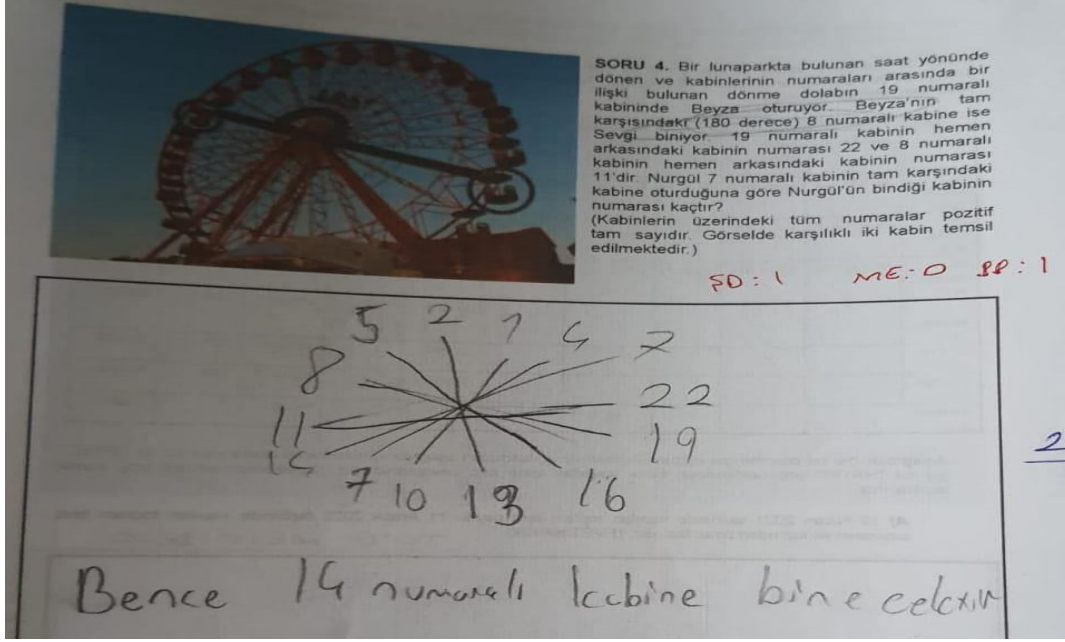 SORU 4. Bir lunaparkta bulunan saat yönünde
dönen ve kabinlerinin numaraları arasında bir
ilişki bulunan dönme dolabın 19 numaralı
kabininde Beyza oturuyor. Beyza'nın tam
karşısındaki (180 derece) 8 numaralı kabine ise
Sevgi biniyor. 19 numaralı kabinin hemen
arkasındaki kabinin numarası 22 ve 8 numaralı
kabinin hemen arkasındaki kabinin numarası
11'dir. Nurgül 7 numaralı kabinin tam karşındaki
kabine oturduğuna göre Nurgül'ün bindiği kabinin
numarası kaçtır?
(Kabinlerin üzerindeki tüm numaralar pozitif
tam sayıdır. Görselde karşılıklı iki kabin temsil
edilmektedir.)
ŞD: 1 ME: 0 : 1
5 2 1 4 7
8 22
11 19
14
7 10 13 16
2
Bence 14 numaralı kabine